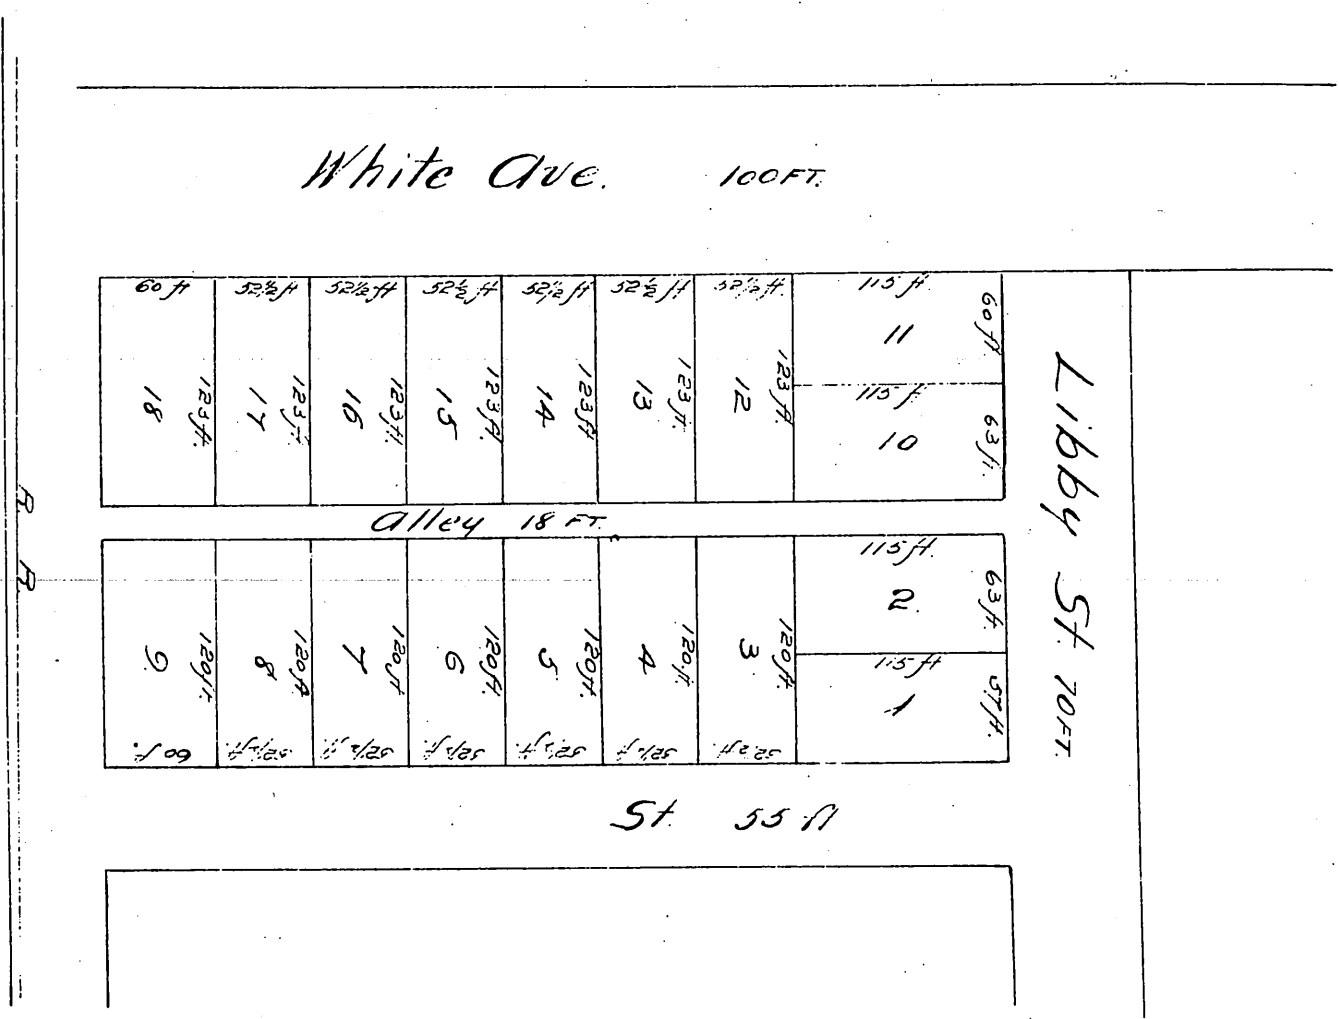 White Ave. 100 FT.
60 ft 52½ ft 52½ ft 52½ ft 52½ ft 52½ ft 52½ ft. 115 ft
18 123 ft. 17 123 ft. 16 123 ft. 15 123 ft. 14 123 ft 13 123 ft. 12 123 ft. 11 60 ft.
115 ft
10 63 ft.
Alley 18 FT.
115 ft.
2. 63 ft.
9. 120 ft. 8 120 ft. 7 120 ft 6 120 ft. 5 120 ft. 4 120 ft. 3 120 ft.
115 ft
1 57 ft.
60 ft. 52½ ft. 52½ ft. 52½ ft. 52½ ft. 52½ ft. 52½ ft.
St. 55 ft
Libby St. 70 FT.
R. R.